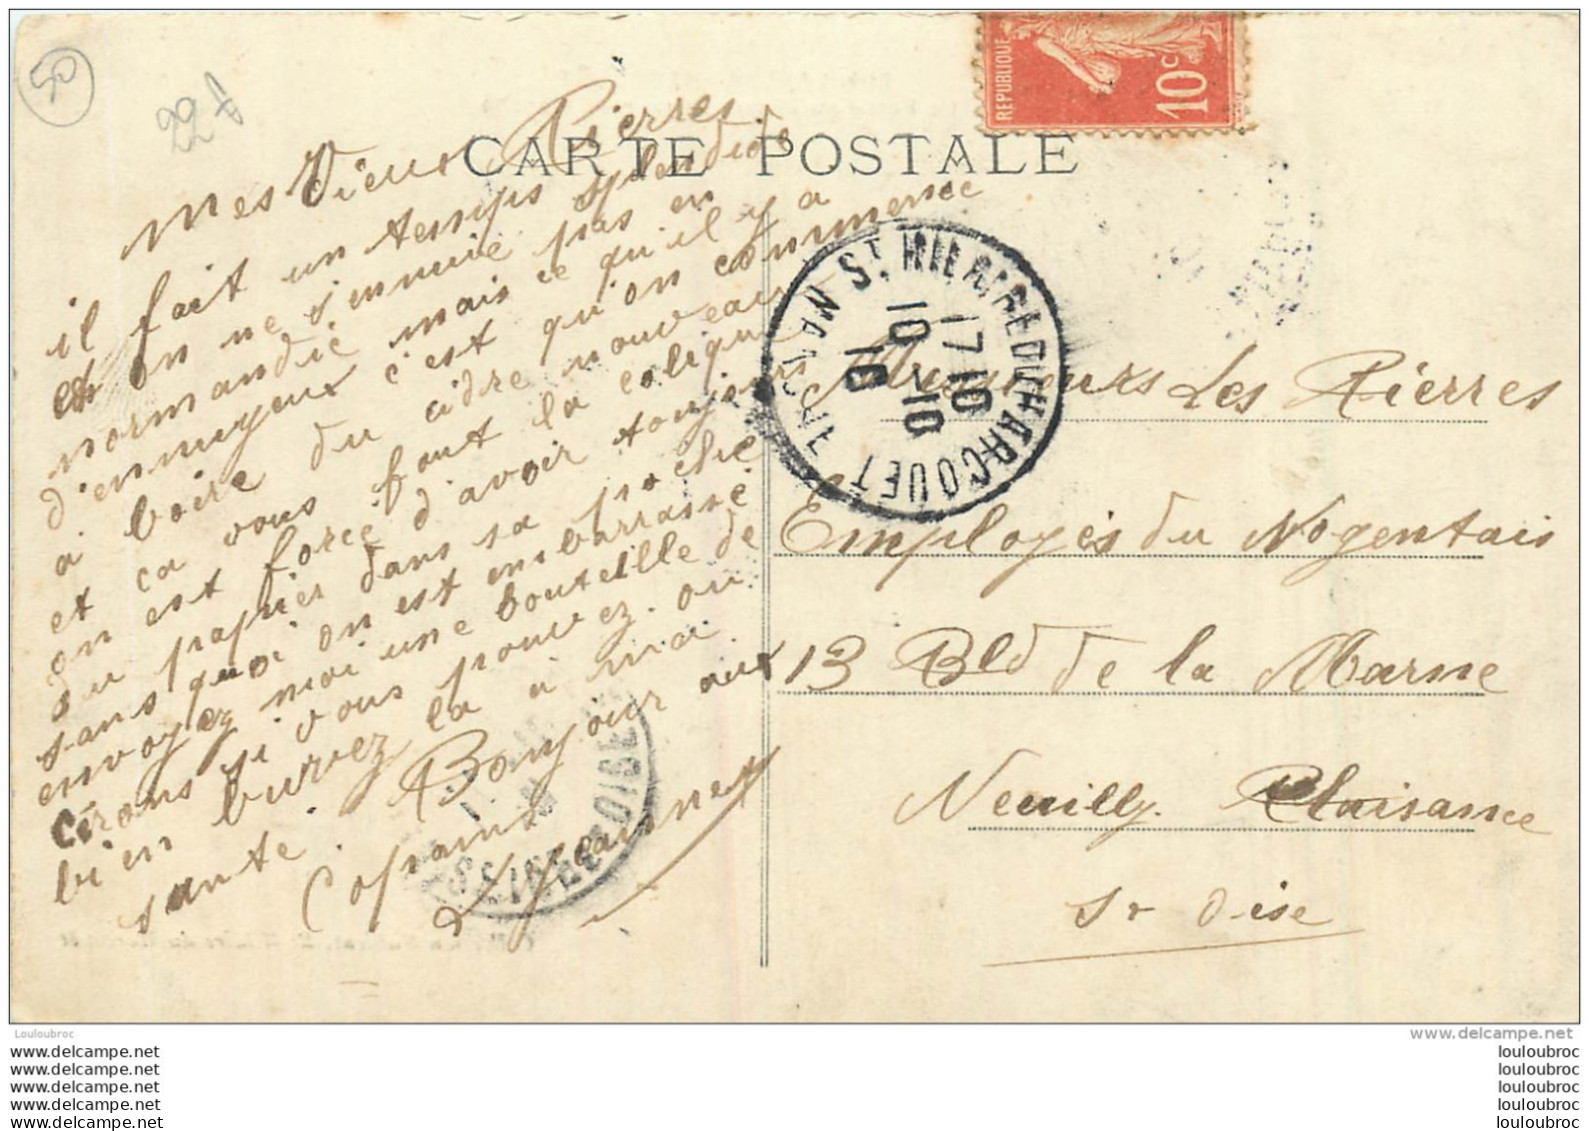 50
CARTE POSTALE
REPUBLIQUE
10c
Mes Vieux Pierres
il fait un temps splendide
et on ne s'ennuie pas en
normandie mais ce qu'il y a
d'ennuyeux c'est qu'on commence
a boire du cidre nouveau
et ca vous fout la colique
on est forcé d'avoir toujours
du papier dans sa poche
sans quoi on est embarrassé
envoyez moi une bouteille de
Cirons si vous pouvez. ou
bien burvez la a ma
santé. Bonjour aux
Copains
17-10
10
Messieurs Les Pierres
Employés du Nogentais
13 Bld de la Marne
Neuilly. Plaisance
Sr Oise
Louloubroc
www.delcampe.net
www.delcampe.net
www.delcampe.net
www.delcampe.net
www.delcampe.net
www.delcampe.net
louloubroc
louloubroc
louloubroc
louloubroc
louloubroc